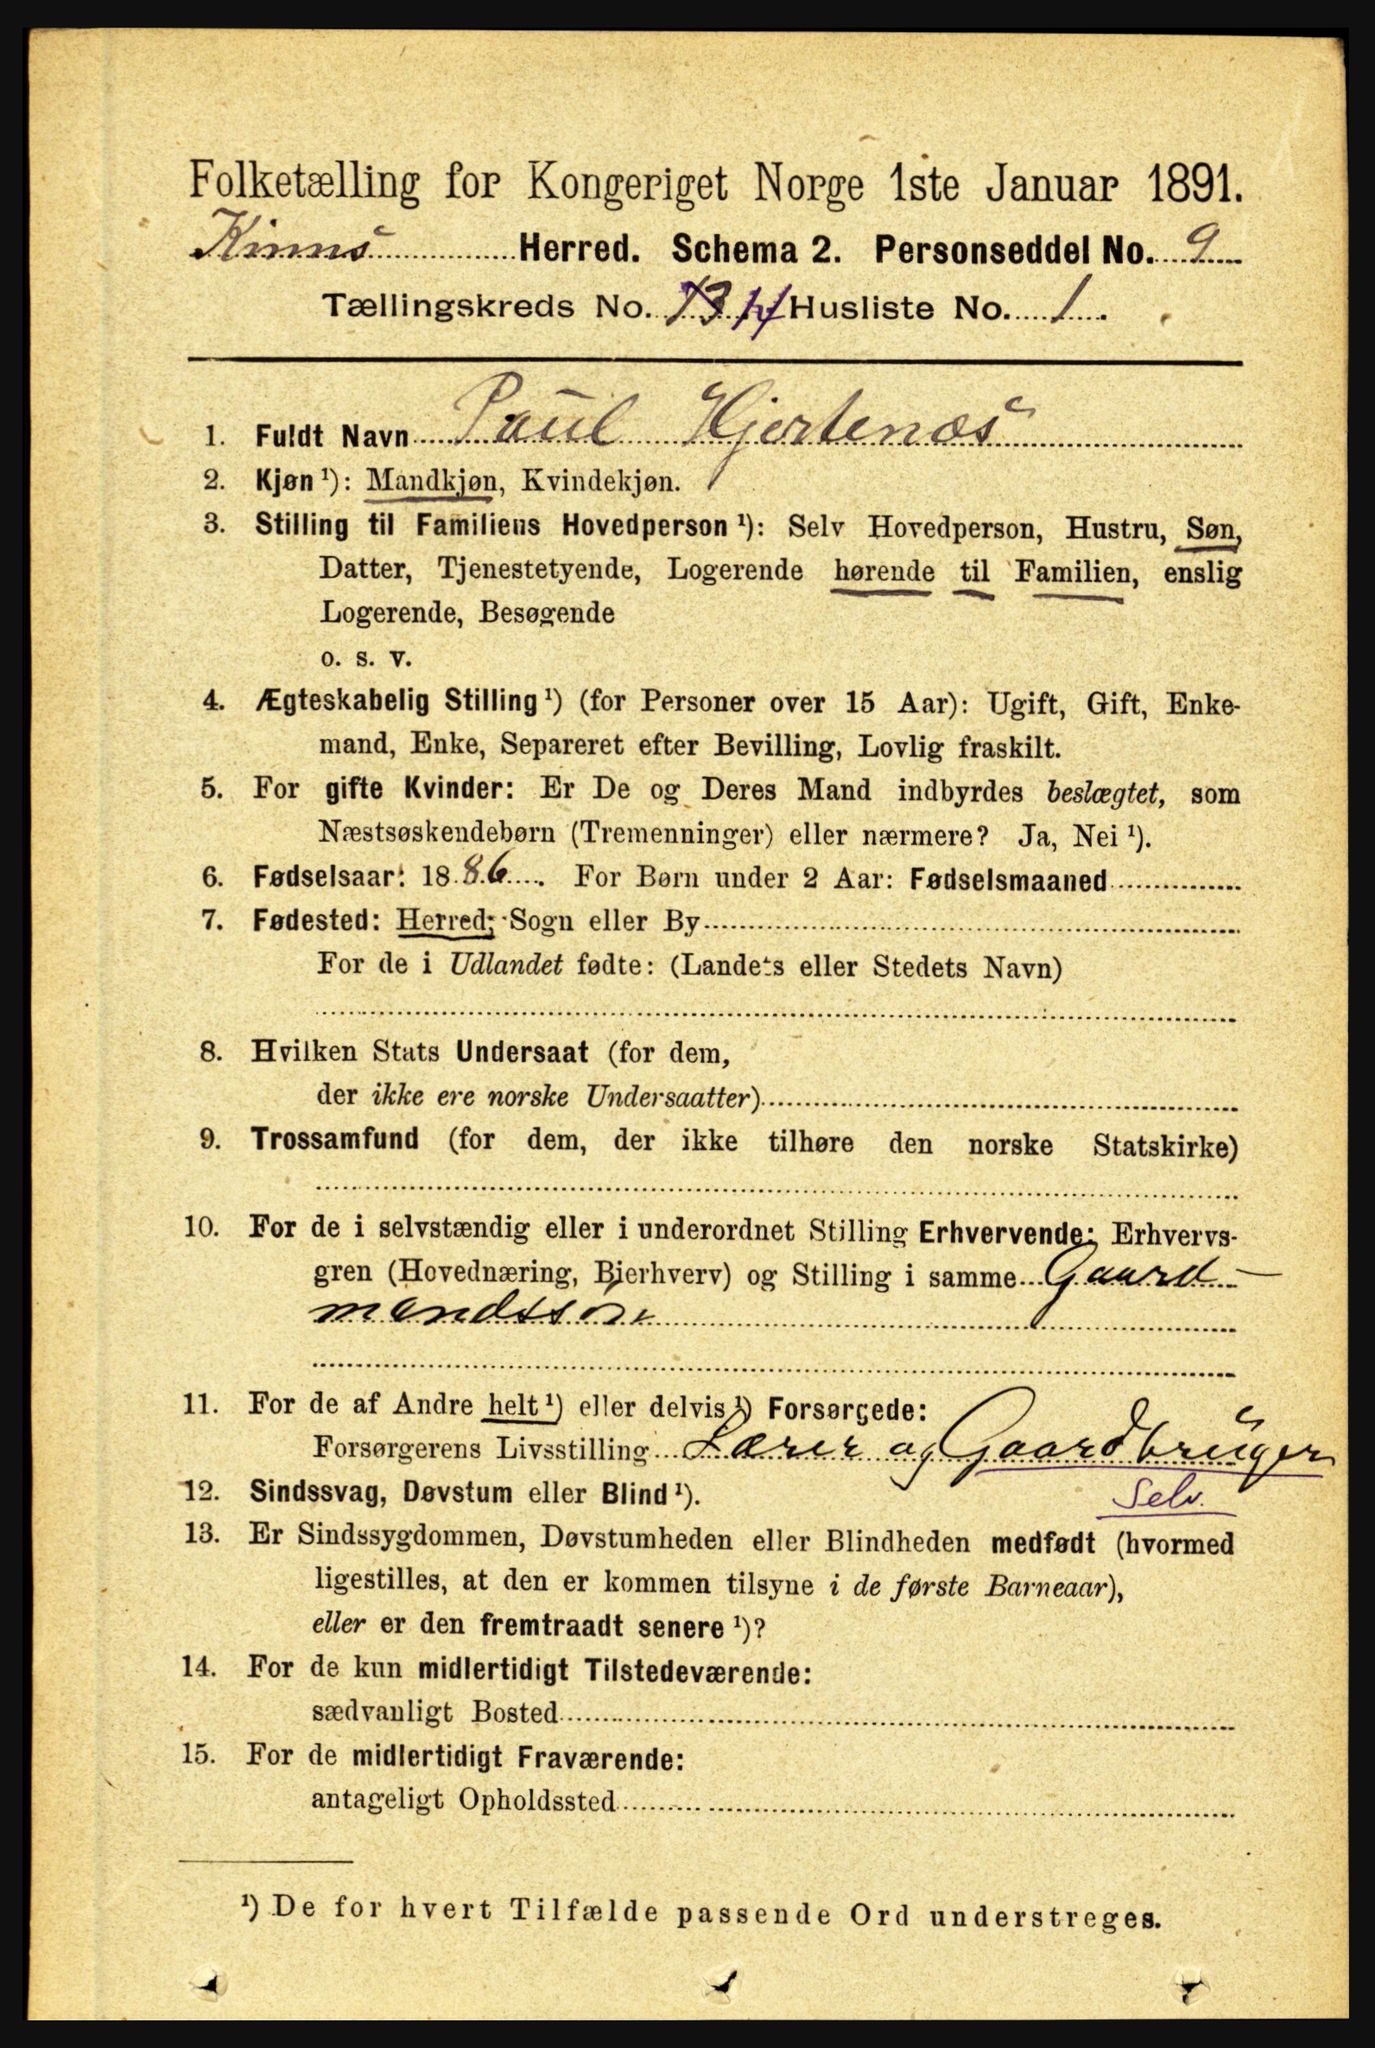 Folketælling for Kongeriget Norge 1ste Januar 1891.
Kinns Herred. Schema 2. Personseddel No. 9
Tællingskreds No. 13 14 Husliste No. 1.
1. Fuldt Navn Paul Hjertenæs
2. Kjøn ¹): Mandkjøn, Kvindekjøn.
3. Stilling til Familiens Hovedperson ¹): Selv Hovedperson, Hustru, Søn,
Datter, Tjenestetyende, Logerende hørende til Familien, enslig
Logerende, Besøgende
o. s. v.
4. Ægteskabelig Stilling ¹) (for Personer over 15 Aar): Ugift, Gift, Enke-
mand, Enke, Separeret efter Bevilling, Lovlig fraskilt.
5. For gifte Kvinder: Er De og Deres Mand indbyrdes beslægtet, som
Næstsøskendebørn (Tremenninger) eller nærmere? Ja, Nei ¹).
6. Fødselsaar: 1886. For Børn under 2 Aar: Fødselsmaaned
7. Fødested: Herred; Sogn eller By
For de i Udlandet fødte: (Landets eller Stedets Navn)
8. Hvilken Stats Undersaat (for dem,
der ikke ere norske Undersaatter)
9. Trossamfund (for dem, der ikke tilhøre den norske Statskirke)
10. For de i selvstændig eller i underordnet Stilling Erhvervende: Erhvervs-
gren (Hovednæring, Bierhverv) og Stilling i samme Gaard-
mandssøn
11. For de af Andre helt ¹) eller delvis ¹) Forsørgede:
Forsørgerens Livsstilling Lærer og Gaardbruger
12. Sindssvag, Døvstum eller Blind ¹). Selv.
13. Er Sindssygdommen, Døvstumheden eller Blindheden medfødt (hvormed
ligestilles, at den er kommen tilsyne i de første Barneaar),
eller er den fremtraadt senere ¹)?
14. For de kun midlertidigt Tilstedeværende:
sædvanligt Bosted
15. For de midlertidigt Fraværende:
antageligt Opholdssted
¹) De for hvert Tilfælde passende Ord understreges.